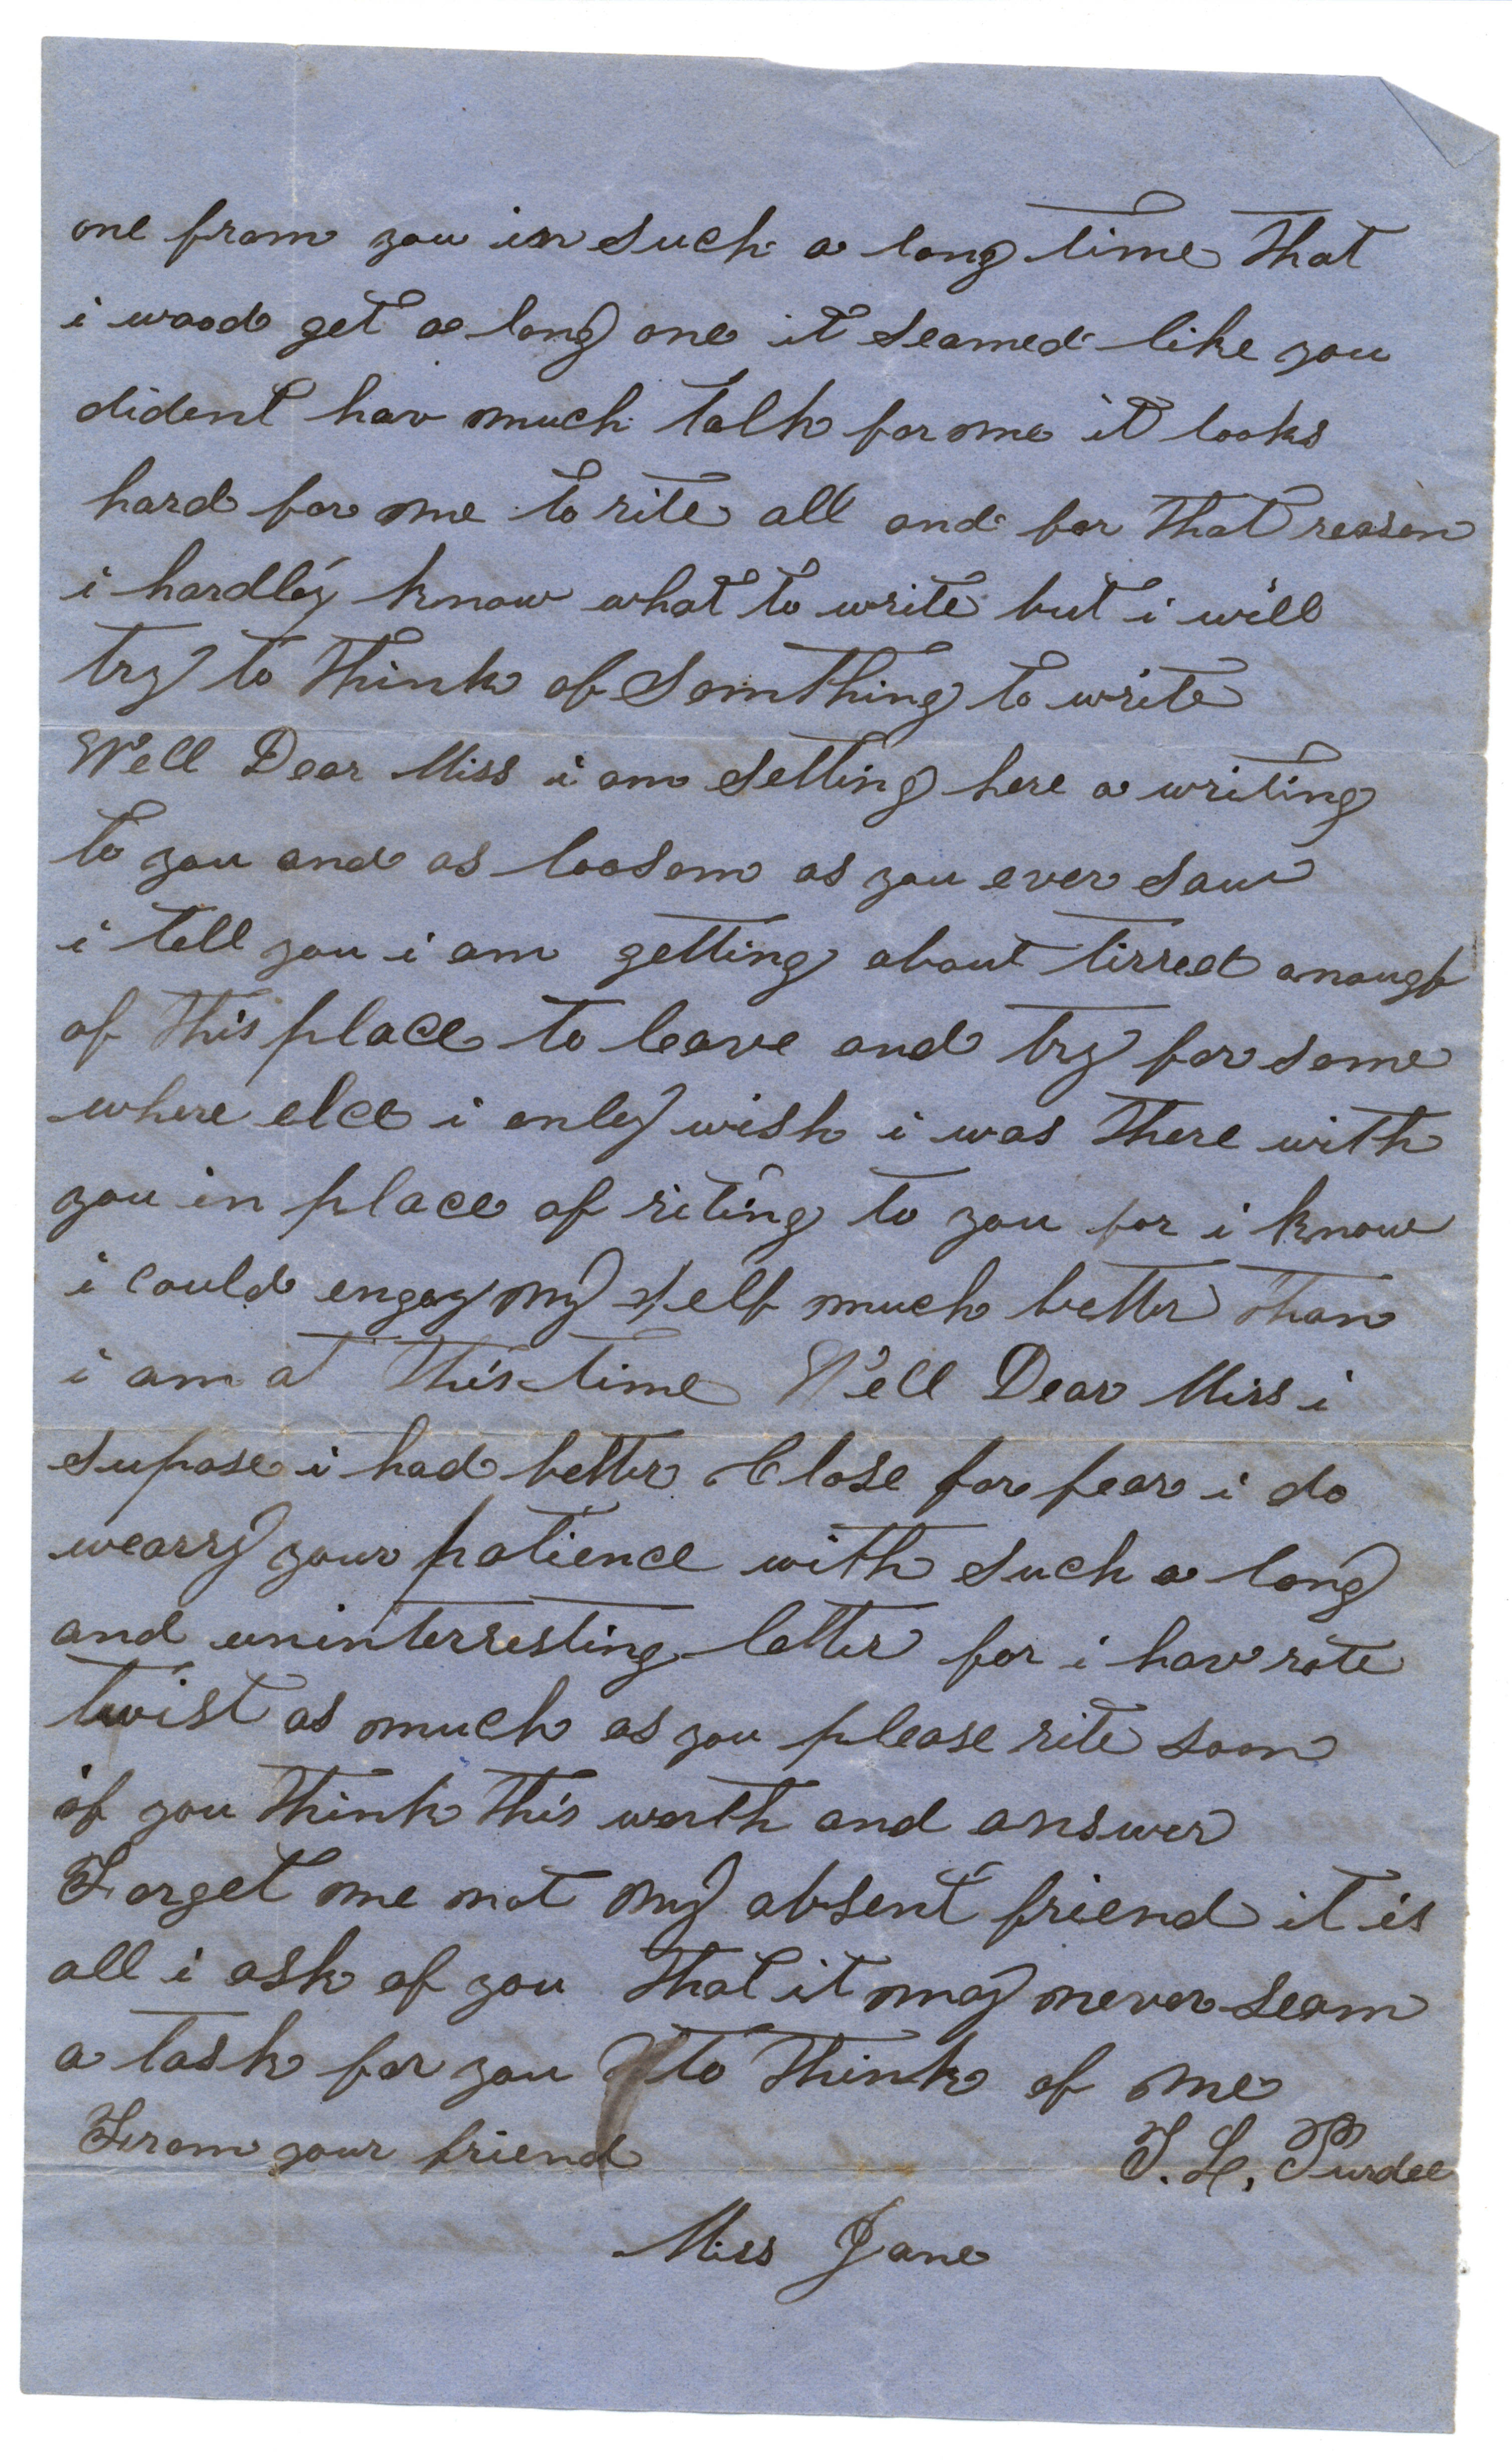 one from you in such a long time that
i wood get a long one it seamed like you
dident hav much talk for me it looks
hard for me to rite all and for that reason
i hardley know what to write but i will
try to think of Somthing to write
Well Dear Miss i am setting here a writing
to you and as loosom as you ever saw
i tell you i am getting about tirred anough
of this place to leave and try for some
where elce i onley wish i was there with
you in place of riting to you for i know
i could engoy my self much better than
i am at this time Well Dear Miss i
supose i had better Close for fear i do
wearry your patience with such a long
and uninterresting letter for i hav rote
twist as much as you please rite soon
if you think this worth and answer
Forget me not my absent friend it is
all i ask of you that it may never seam
a task for you to think of me
From your friend T. L. Purdee
Miss Jane